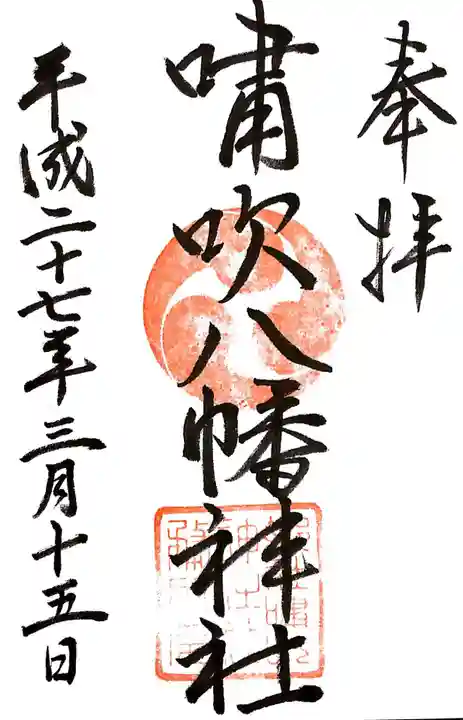 奉拝
嘯吹八幡神社
平成二十七年三月十五日